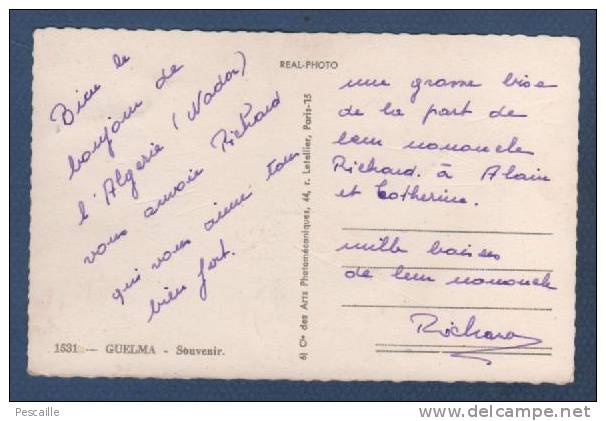 Bien le
bonjour de
l'Algérie (Nador)
vous envoie Richard
qui vous aime tous
bien fort.
REAL-PHOTO
une grosse bise
de la part de
leur nononcle
Richard. à Alain
et Catherine.
mille baises
de leur nononcle
Richard
6) Cie des Arts Photomécaniques, 44, r. Letellier, Paris-15
1531 — GUELMA - Souvenir.
Pescaille
http://www.delcampe.net